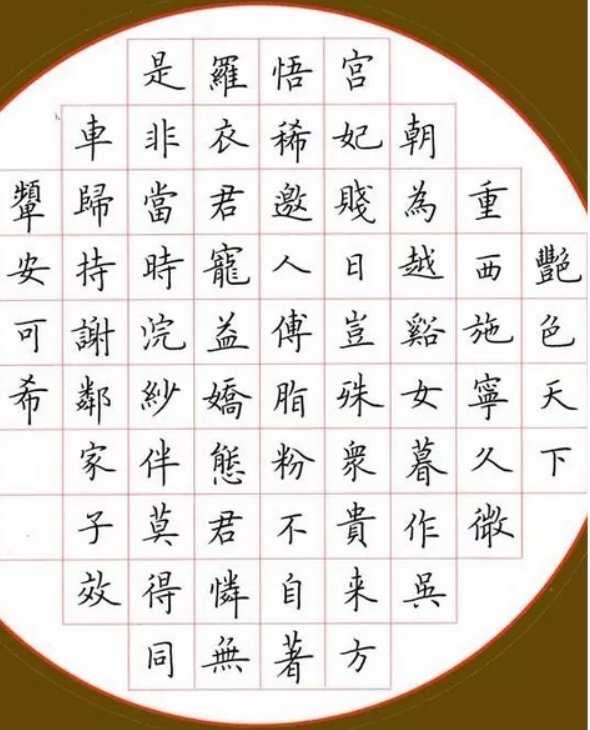 豔色天下
重西施寧久微
朝為越谿女暮作吳
宫妃賤日豈殊衆貴来方
悟稀邀人傅脂粉不自著
羅衣君寵益嬌態君憐無
是非當時浣紗伴莫得同
車歸持謝鄰家子效
顰安可希